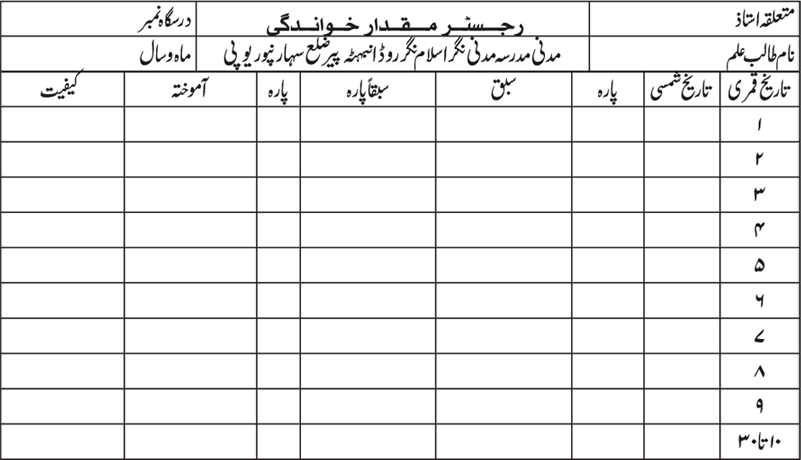 متعلقہ استاذ رجسٹر مقدار خواندگی درسگاہ نمبر
نام طالب علم مدنی مدرسہ مدنی نگر اسلام نگر روڈ انبہٹہ پیر ضلع سہارنپور یوپی ماہ و سال
تاریخ قمری تاریخ شمسی پارہ سبق سبقاً پارہ پارہ آموختہ کیفیت
۱
۲
۳
۴
۵
۶
۷
۸
۹
۱۰ تا ۳۰